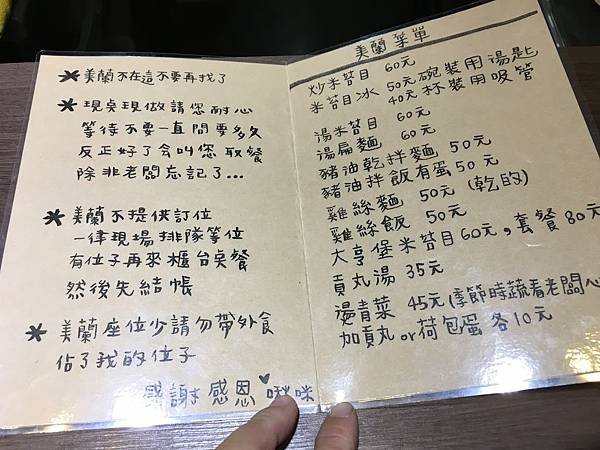 * 美蘭不在這不要再找了
* 現桌現做請您耐心
等待不要一直問要多久
反正好了會叫您取餐
除非老闆忘記了...
* 美蘭不提供訂位
一律現場排隊等位
有位子再來櫃台桌餐
然後先結帳
* 美蘭座位少請勿帶外食
佔了我的位子
感謝感恩♥啾咪
美蘭菜單
炒米苔目 60元
米苔目冰 50元碗裝用湯匙
40元杯裝用吸管
湯米苔目 60元
湯扁麵 60元
豬油乾拌麵 50元
豬油拌飯有蛋50元
雞絲麵 50元(乾的)
雞絲飯 50元
大亨堡米苔目60元,套餐80元
貢丸湯 35元
燙青菜 45元(季節時蔬看老闆心
加貢丸or荷包蛋各10元